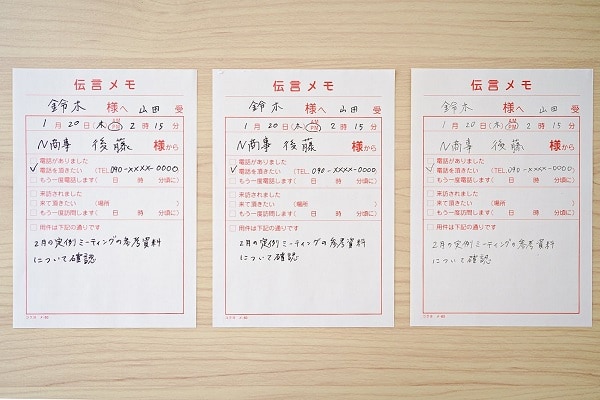 伝言メモ
鈴木 様へ 山田 受
1月20日(木) AM PM 2時15分
N商事 後藤 様から
電話がありました
電話を頂きたい (TEL 090-XXXX-0000)
もう一度電話します( 日 時 分頃に)
来訪されました
来て頂きたい (場所 )
もう一度訪問します( 日 時 分頃に)
用件は下記の通りです
2月の定例ミーティングの参考資料
について確認
伝言メモ
鈴木 様へ 山田 受
1月20日(木) AM PM 2時15分
N商事 後藤 様から
電話がありました
電話を頂きたい (TEL 090-XXXX-0000)
もう一度電話します( 日 時 分頃に)
来訪されました
来て頂きたい (場所 )
もう一度訪問します( 日 時 分頃に)
用件は下記の通りです
2月の定例ミーティングの参考資料
について確認
伝言メモ
鈴木 様へ 山田 受
1月20日(木) AM PM 2時15分
N商事 後藤 様から
電話がありました
電話を頂きたい (TEL 090-XXXX-0000)
もう一度電話します( 日 時 分頃に)
来訪されました
来て頂きたい (場所 )
もう一度訪問します( 日 時 分頃に)
用件は下記の通りです
2月の定例ミーティングの参考資料
について確認